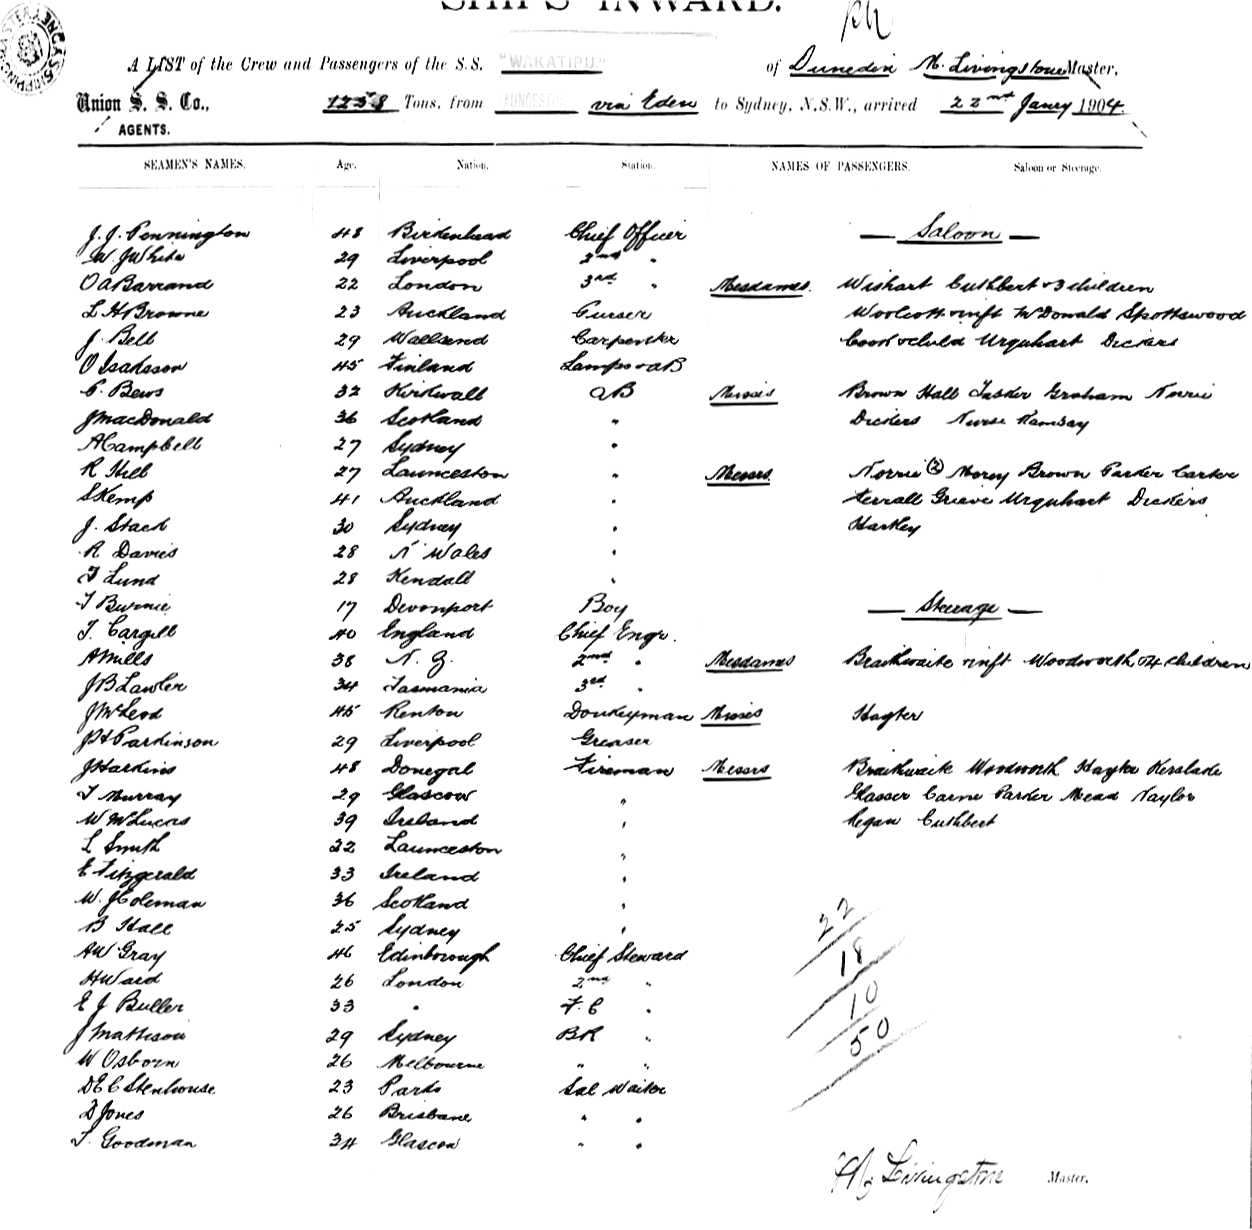 SHIPS INWARD.
A LIST of the Crew and Passengers of the S.S. "WAKATIPU" of Dunedin M. Livingstone Master,
Union S. S. Co., 1258 Tons, from LAUNCESTON via Eden to Sydney, N.S.W., arrived 22nd Jany 1904.
AGENTS.
SEAMEN'S NAMES. Age. Nation. Station. NAMES OF PASSENGERS. Saloon or Steerage.
J. J. Pennington 48 Birkenhead Chief Officer — Saloon —
W. J White 29 Liverpool 2nd "
O A Barrand 22 London 3rd " Mesdames. Wishart Cuthbert & 3 children
L H Browne 23 Auckland Purser Woolcott & inft McDonald Spottswood
J. Bell 29 Wallsend Carpenter Cook & child Urquhart Dickers
O Isaksson 45 Finland Lamps & AB
P. Bews 32 Kirkwall AB Misses Brown Hall Tasker Graham Norrie
J MacDonald 36 Scotland " Dickers Nurse Ramsay
A Campbell 27 Sydney "
R Hill 27 Launceston " Messrs. Norrie (2) Morey Brown Parker Carter
S Kemp 41 Auckland " Ferrall Grieve Urquhart Dickers
J. Stack 30 Sydney " Hartley
R Davies 28 N Wales "
T Lund 28 Kendall "
T Burnie 17 Devonport Boy — Steerage —
T. Cargill 40 England Chief Engr.
A Mills 38 N. Z. 2nd " Mesdames Braithwaite & inft Woodworth & 4 children
J B Lawler 34 Tasmania 3rd "
J McLeod 45 Renton Donkeyman Misses Hayter
J H Parkinson 29 Liverpool Greaser
J Harkins 48 Donegal Fireman Messrs Braithwaite Woodworth Hayter Kerslake
T Murray 29 Glascow " Glasser Carne Parker Mead Naylor
W McLucas 39 Ireland " Regan Cuthbert
L Smith 22 Launceston "
E Fitzgerald 33 Ireland "
W. J Coleman 36 Scotland "
B Hall 25 Sydney " 22
A W Gray 46 Edinborough Chief Steward 18
H Ward 26 London 2nd " 10
E J Buller 33 " F. C " 50
J Mathison 29 Sydney BR "
W Osborn 26 Melbourne " "
D E C Stenhouse 23 Paris Sal Waiter
D Jones 26 Brisbane " "
T. Goodman 34 Glascow " "
M. Livingstone Master.